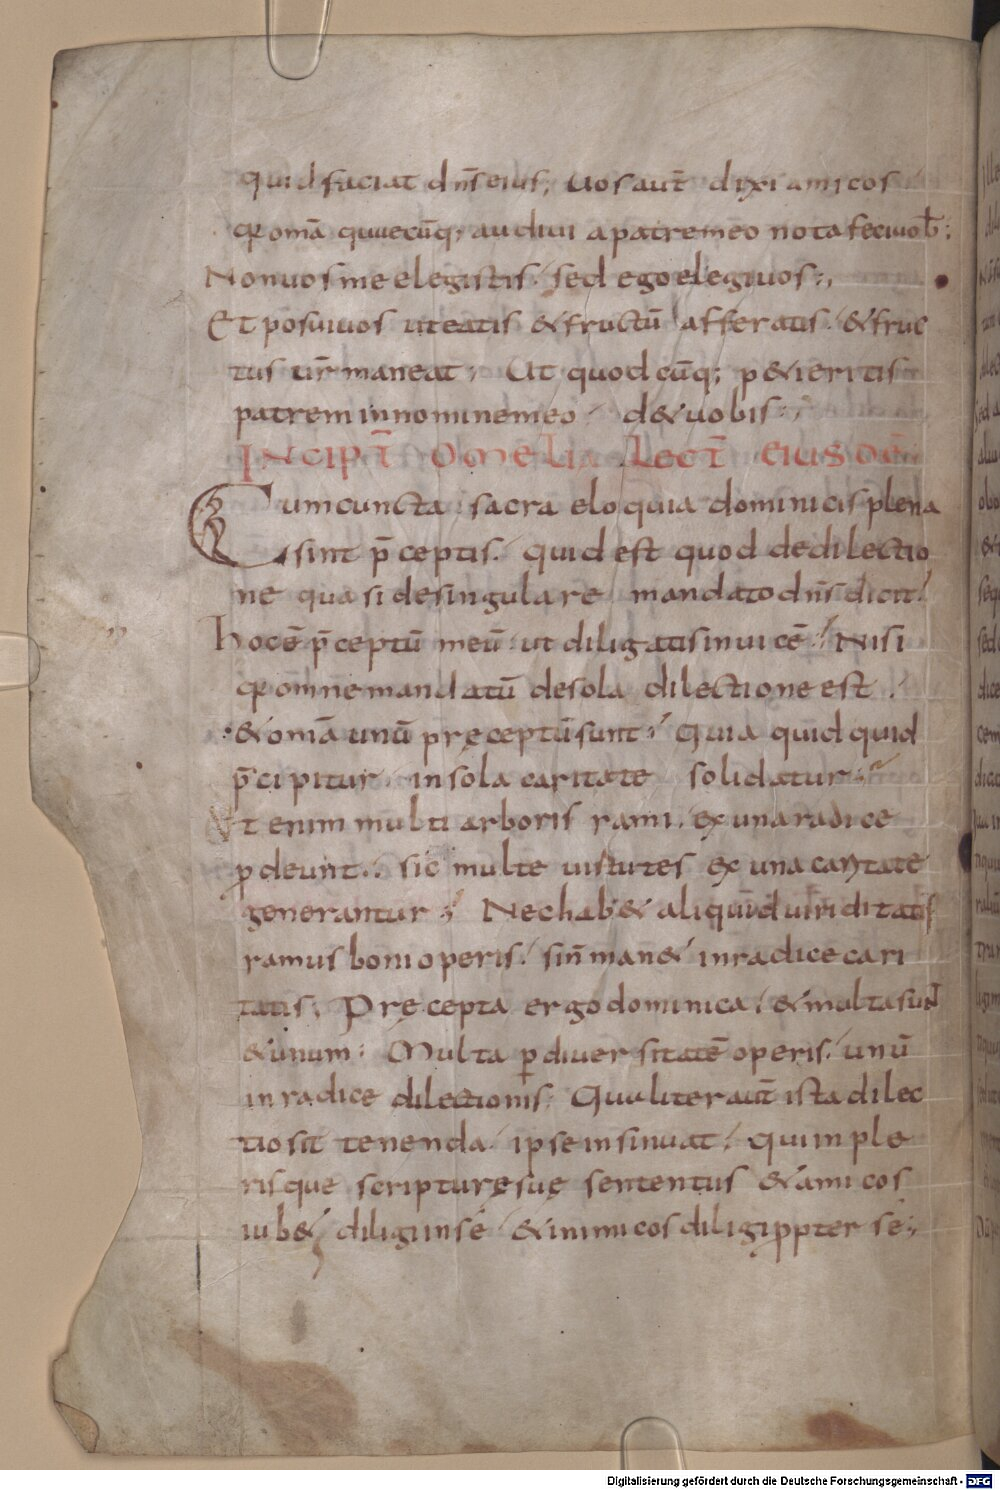 quid faciat dn̄s eius; Uos aut̄ dixi amicos
qr omā quecūq; audiui a patre meo nota feci uob̄;
Non uos me elegistis / sed ego elegi uos:,
Et posui uos ut eatis & fructū afferatis. & fruc
tus ur̄ maneat; Ut quodcūq; p&ieritis
patrem in nomine meo / d& uobis:,
INCIPĪT OMELIA LECT̄ EIUSDĒ
Cum cuncta sacra eloquia dominicis plena
sint p̄ceptis. quid est quod de dilectio
ne quasi de singulare mandato dn̄s dicit!
hoc ē p̄ceptū meū ut diligatis inuicē / Nisi
qr omne mandatū de sola dilectione est /
& omā unū pręceptū sunt; Quia quidquid
p̄cipitur. in sola caritate solidatur;
Ut enim multi arboris rami. ex una radice
ꝓdeunt.. sic multe uirtutes ex una caritate
generantur; Nec hab& aliquid uiriditatis
ramus boni operis / sin̄ man& in radice cari
tatis; Pręcepta ergo dominica / & multa sunt
& unum; Multa ꝑ diuersitatē operis / unū
in radice dilectionis; Qualiter aut̄ ista dilec
tio sit tenenda / ipse insinuat / qui in ple
risque scripturę suę sententiis & amicos
iub& diligi in sé / & inimicos diligi ꝓpter se;
Digitalisierung gefördert durch die Deutsche Forschungsgemeinschaft - DFG